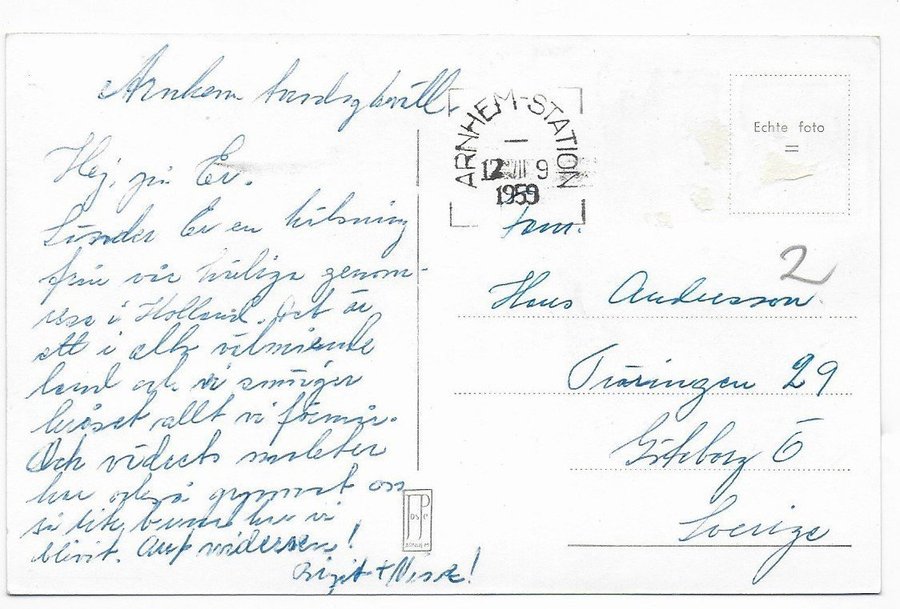 Arnhem
ARNHEM-STATION
12 VII 9
1959
Echte foto
=
2
Hej, på Er.
Sänder Er en hälsning
från vår härliga genom-
resa i Holland. Det är
ett i allo välmående
land och vi
allt vi förmår.
Och vädrets makter
har också gynnat oss
så lite bruna har vi
blivit. Auf
Birgit +
Fam.
Hans Andersson
29
Göteborg Ö
Sverige